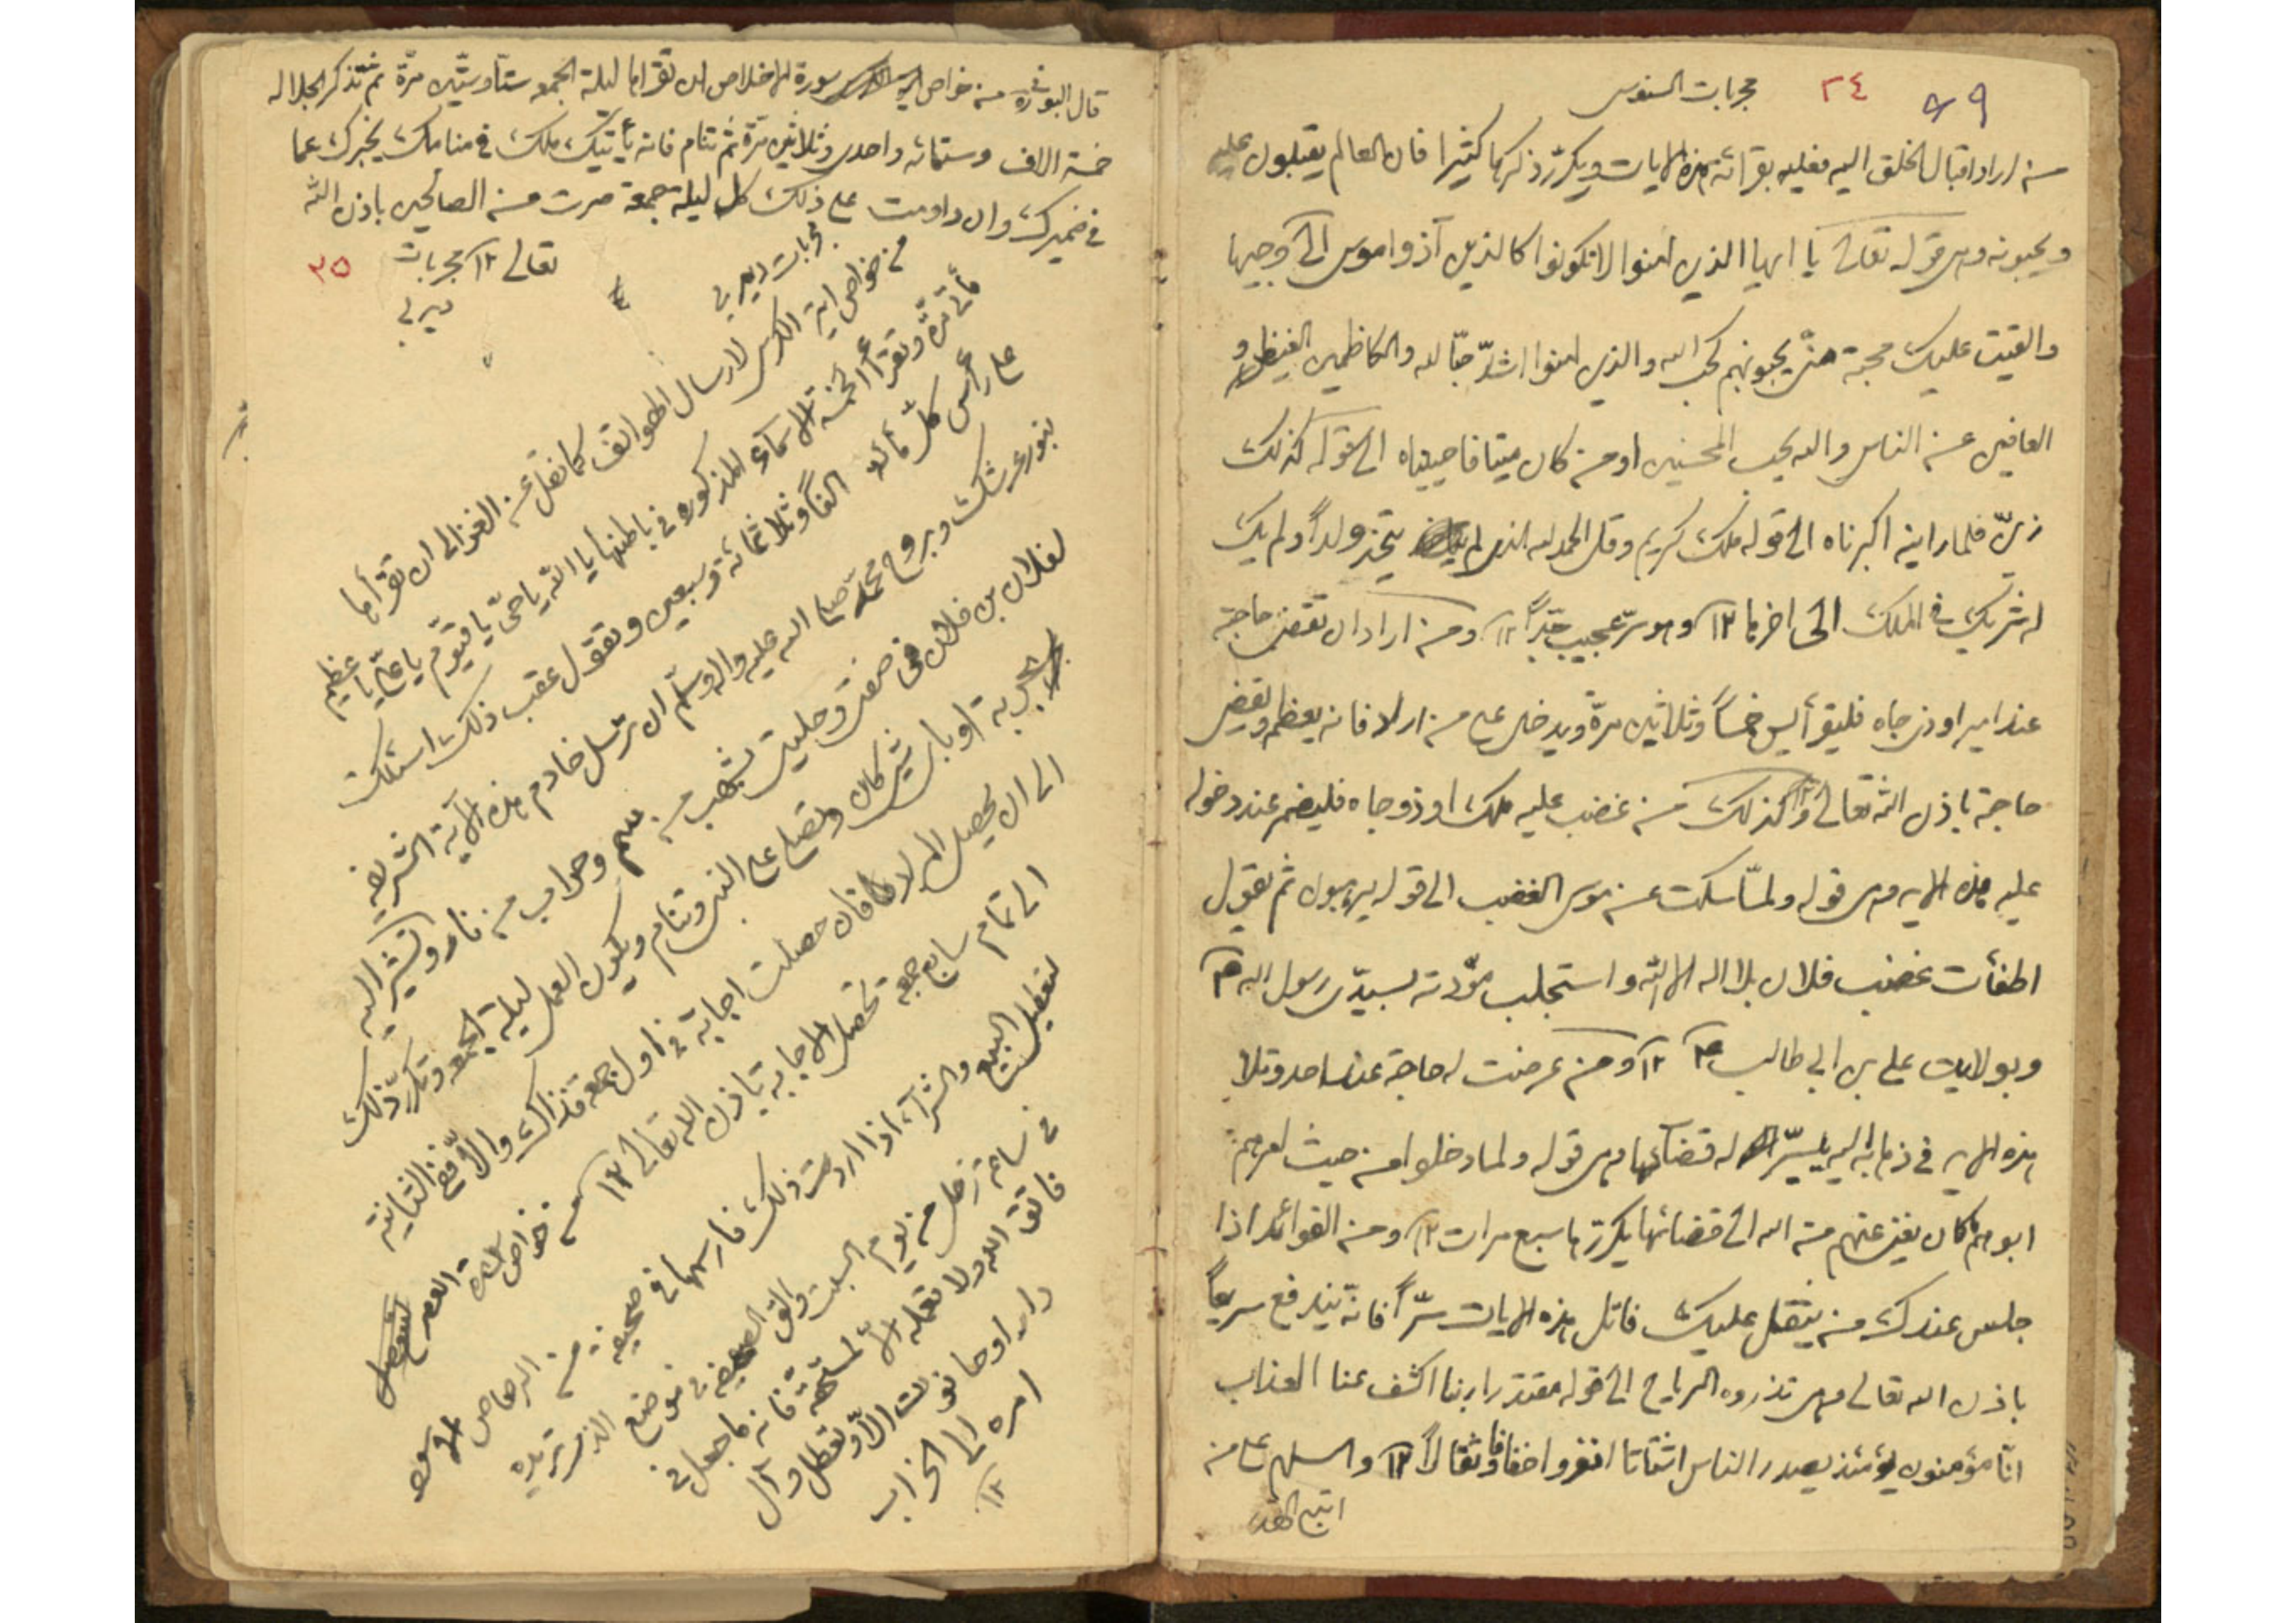 ٨٩ ٢٤ مجربات السنوسي
من اراد اقبال الخلق اليه فعليه بقرائة هذه الايات ويكرر ذكرها كثيرا فان العالم يقبلون عليه
ويحبونه وهي قوله تعالى يا ايها الذين امنوا لا تكونوا كالذين آذوا موسى الى وجيها
والقيت عليك محبة منّى يحبونهم كحب الله والذين امنوا اشدّ حبّا لله والكاظمين الغيظ و
العافين عن الناس والله يحب المحسنين اومن كان ميتا فاحييناه الى قوله كذلك
زيّن فلما راينه اكبرناه الى قوله ملك كريم وقل الحمد لله الذى لم يتخذ ولداً ولم يك
له شريك في الملك الى اخرها ١٢ وهو سرّ عجيب جدّاً ١٢ ومن اراد ان تقضى حاجته
عند امير او ذى جاه فليقرأ يس خمساً وثلاثين مرة ويدخل على من اراد فانه يعظم وتقضى
حاجته باذن الله تعالى ١٢ وكذلك من غضب عليه ملك او ذو جاه فليضم عند دخوله
عليه هذه الايه وهى قوله ولمّا سكت عن موسى الغضب الى قوله يرهبون ثم يقول
اطفأت غضب فلان بلا اله الا الله واستجلب مودّته بسيدى رسول الله ص
وبولايت على بن ابي طالب ع ١٢ ومن عرضت له حاجة عند احد وتلا
هذه الايه في ذهابه اليه يسّر الله له قضائها وهى قوله ولما دخلوا من حيث امرهم
ابوهم ما كان يغنى عنهم من الله الى قضائها يكررها سبع مرات ١٢ ومن الفوائد اذا
جلس عندك من يثقل عليك فاتل هذه الايات سرّاً فانه يندفع سريعاً
باذن الله تعالى وهى تذروه الرياح الى قوله مقتدرا ربنا اكشف عنا العذاب
انّا مؤمنون يومئذ يصدر الناس اشتاتا انفروا خفافا وثقالاً ١٢ والسلام على من
اتبع الهدى
قال البونى من خواص سورة الاخلاص ان تقراها ليلة الجمعه ستّا وستّين مرّة ثم تذكر الجلاله
خمسة الاف وستمائه واحدى وثلاثين مرّة ثم تنام فانه يأتيك ملك في منامك يخبرك عما
في ضميرك وان داومت على ذلك كل ليلة جمعة صرت من الصالحين باذن الله
تعالى ١٢ مجربات ٢٥
ديربى
مجربات ديربي
من خواص اية الكرسى لارسال الهواتف كما نقل عن الغزالى ان تقرأها
مأتى مرّة وتقرأ الخمسة الاسماء المذكوره في باطنها يا الله ياحىّ يا قيّوم يا علىّ يا عظيم
على راس كل مأة الفاً وثلاثمائة وسبعين وتقول عقب ذلك اسئلك
بنور عرشك وبروح محمّد صلى الله عليه واله وسلم ان ترسل خادم هذه الاية الشريفه
لفلان بن فلان في صفتى وحليتى بشهب من وحراب من نار وتشير اليه
به او باى شيئ كان وتصلى على النبى وتنام ويكون العمل ليلة الجمعه وتكرّر ذلك
الى ان يحصل المراد فان حصلت اجابة في اول جمعة فذاك والا ففى الثانية
الى تمام سابع جمعة تحصل الاجابة باذن الله تعالى ١٢ من خواص سورة العصر
لتعطيل البيع والشرآء اذا اردت ذلك فارسمها في صحيفة من الرصاص الاسود
في ساعة زحل من يوم السبت والق الصحيفه في موضع الذى تريده
فاتق الله ولا تعمله الا لمستحقه فانه ما جعل في
دار او حانوت الا وتعطل وآل
امره الى الخراب
١٢